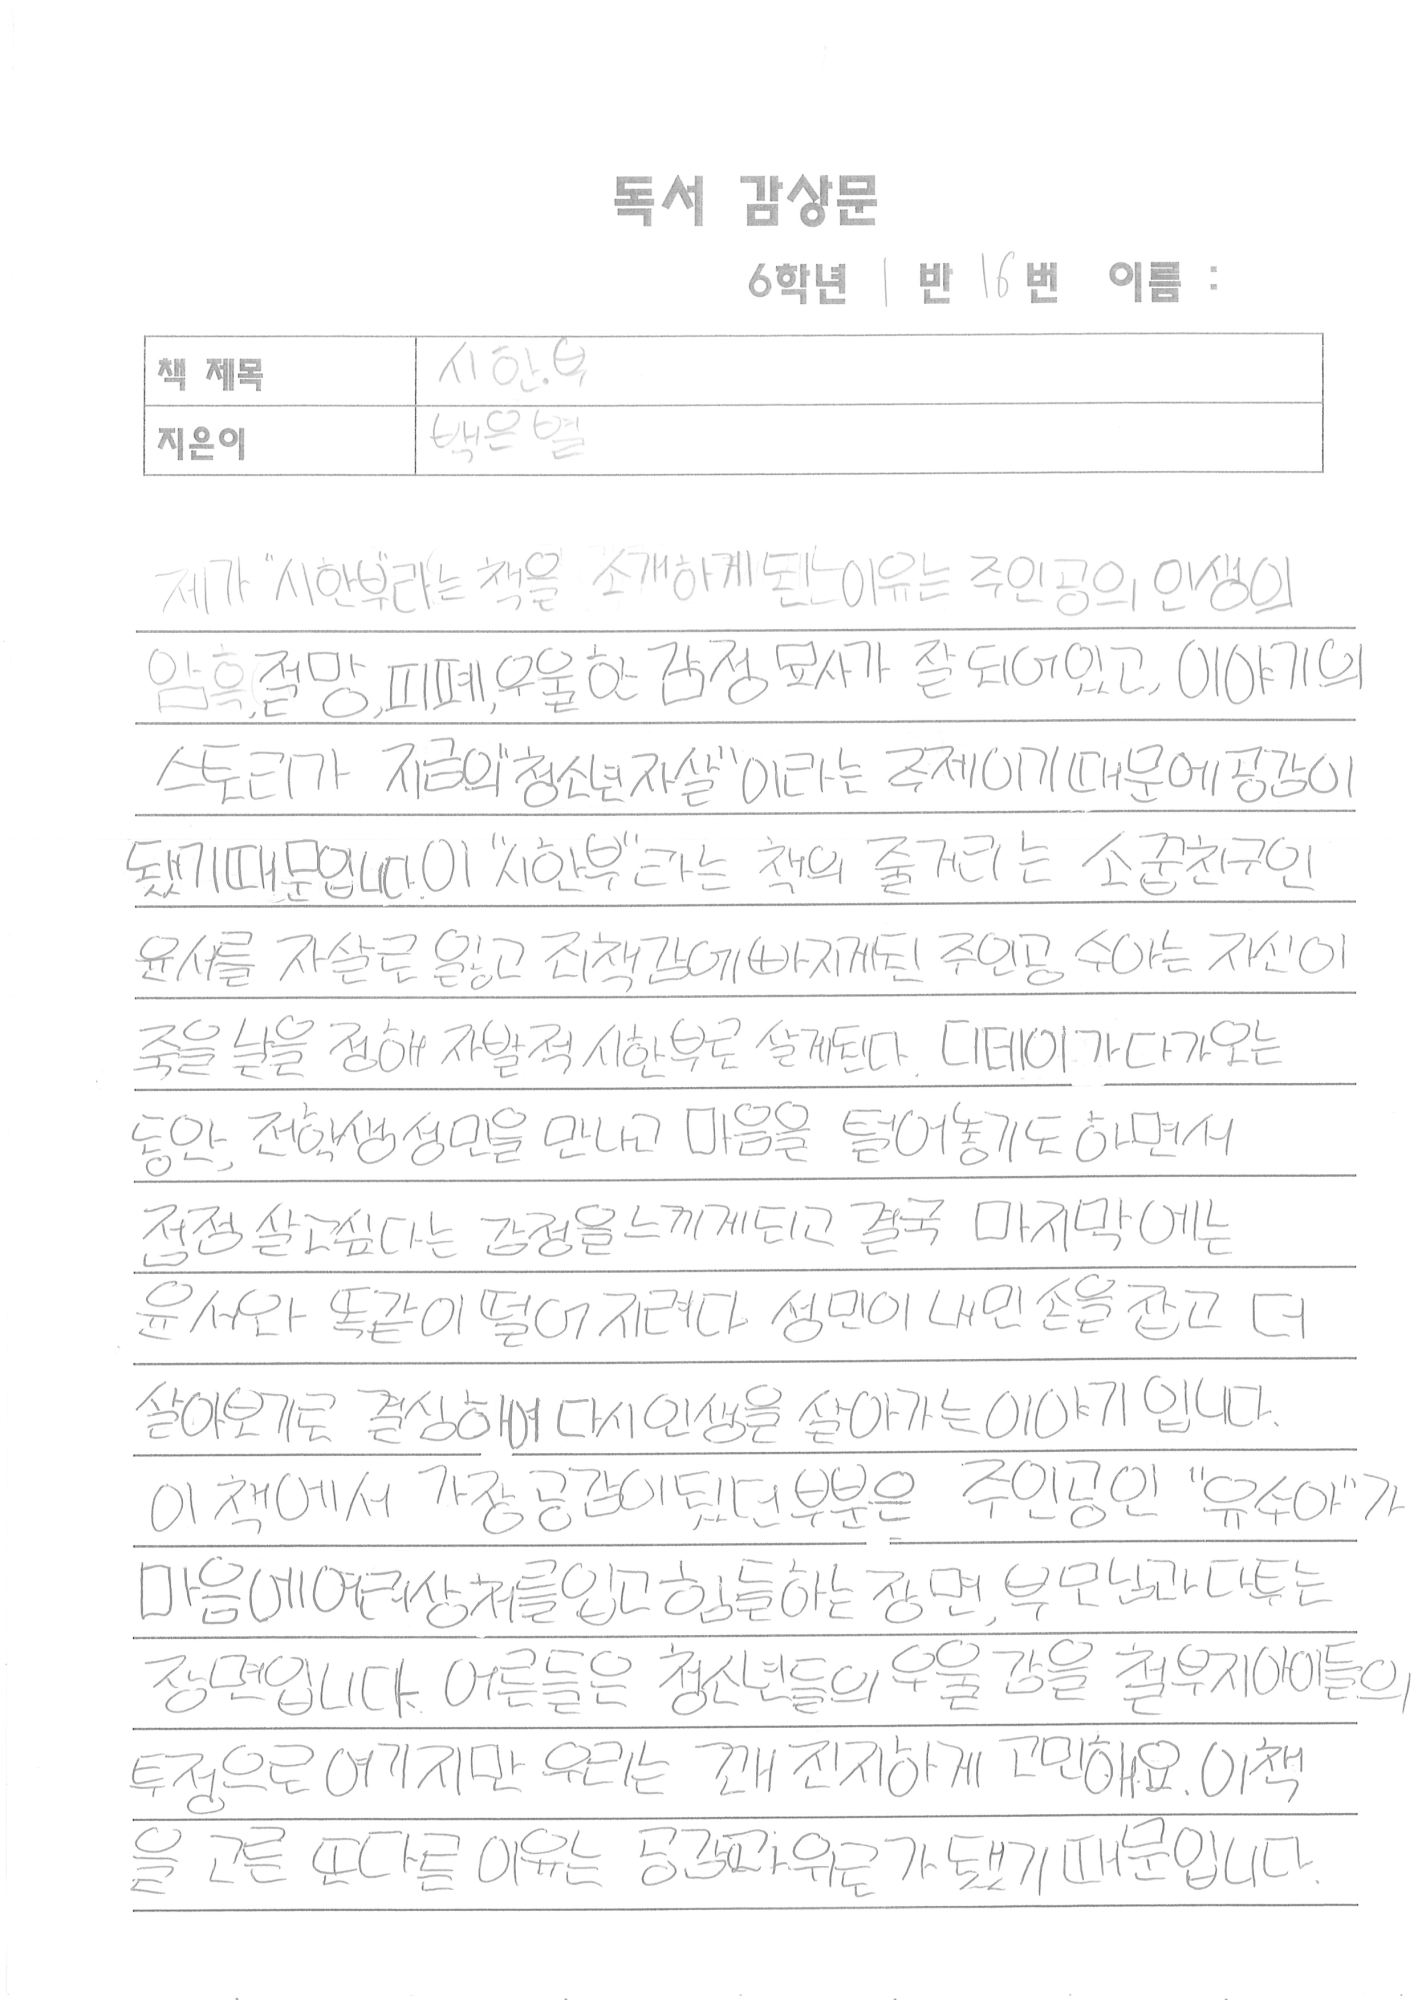 독서 감상문
6학년 1 반 16 번 이름 :
책 제목 시한부
지은이 백은별
제가 "시한부"라는 책을 소개하게 된 이유는 주인공의 인생의
암흑, 절망, 피폐, 우울한 감정 묘사가 잘 되어있고, 이야기의
스토리가 지금의 "청소년 자살" 이라는 주제이기 때문에 공감이
됐기 때문입니다. 이 "시한부"라는 책의 줄거리는 소꿉친구인
윤서를 자살로 잃고 죄책감에 빠지게된 주인공 수아는 자신이
죽을 날을 정해 자발적 시한부로 살게된다. 디데이가 다가오는
동안, 전학생 성민을 만나고 마음을 털어놓기도 하면서
점점 살고싶다는 감정을 느끼게되고 결국 마지막에는
윤서와 똑같이 떨어지려다 성민이 내민 손을 잡고 더
살아보기로 결심하여 다시 인생을 살아가는 이야기 입니다.
이 책에서 가장 공감이 됬던 부분은 주인공인 "유수아"가
마음에 여러 상처를 입고 힘들하는 장면, 부모님과 다투는
장면입니다. 어른들은 청소년들의 우울감을 철부지 아이들의
투정으로 여기지만 우리는 꽤 진지하게 고민해요. 이 책
을 고른 또다른 이유는 공감과 위로가 됐기 때문입니다.